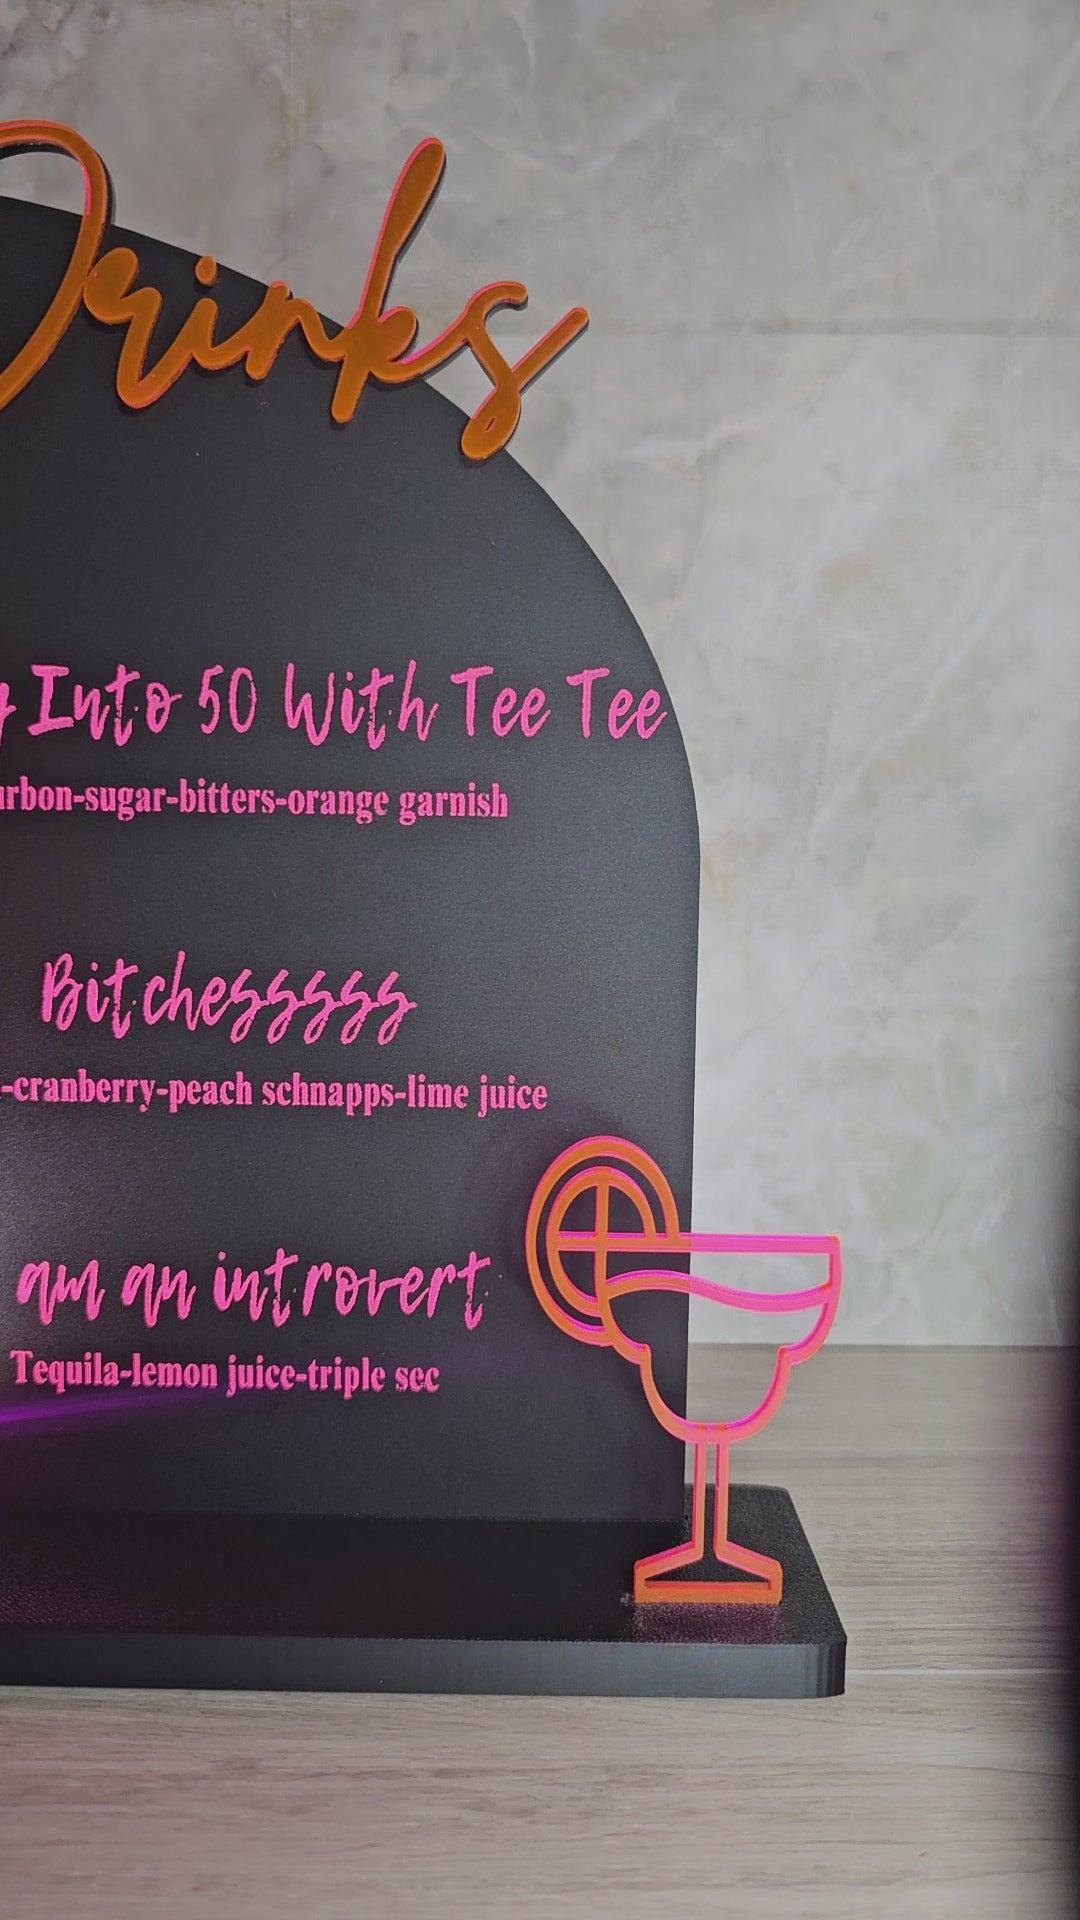 Drinks
Into 50 With Tee Tee
rbon-sugar-bitters-orange garnish
Bitchesssss
-cranberry-peach schnapps-lime juice
am an introvert
Tequila-lemon juice-triple sec